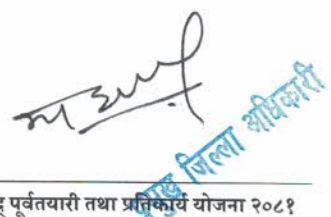 प्रमुख जिल्ला अधिकारी
पूर्वतयारी तथा प्रतिकार्य योजना २०८१